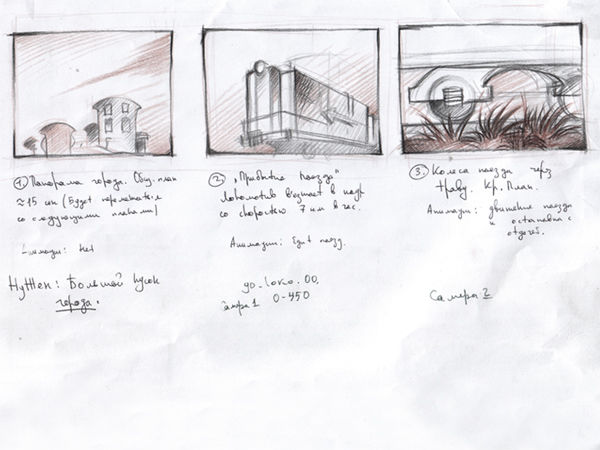 1. Панорама города. Общ. план
≈ 15 сек (Будет перемежаться
со следующими планами)
Анимации: нет
Нужен: Большой кусок
города.
2. „Прибытие поезда"
Локомотив въезжает в кадр
со скоростью 7 км в час.
Анимации: Едит поезд.
до. loко. 00.
камера 1 0-450
3. Колеса поезда через
траву. Кр. План.
Анимации: движение поезда
и остановка с
отдачей.
Camера 2